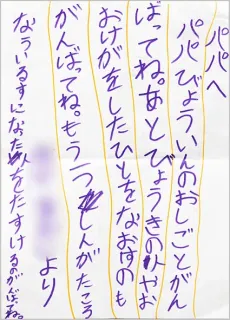 パパへ
パパびょういんのおしごとがん
ばってね。あとびょうきの人やお
おけがをしたひとをなおすのも
がんばってね。もう一つしんがたころ
なういるすになた人をたすけるのがんばね。
より